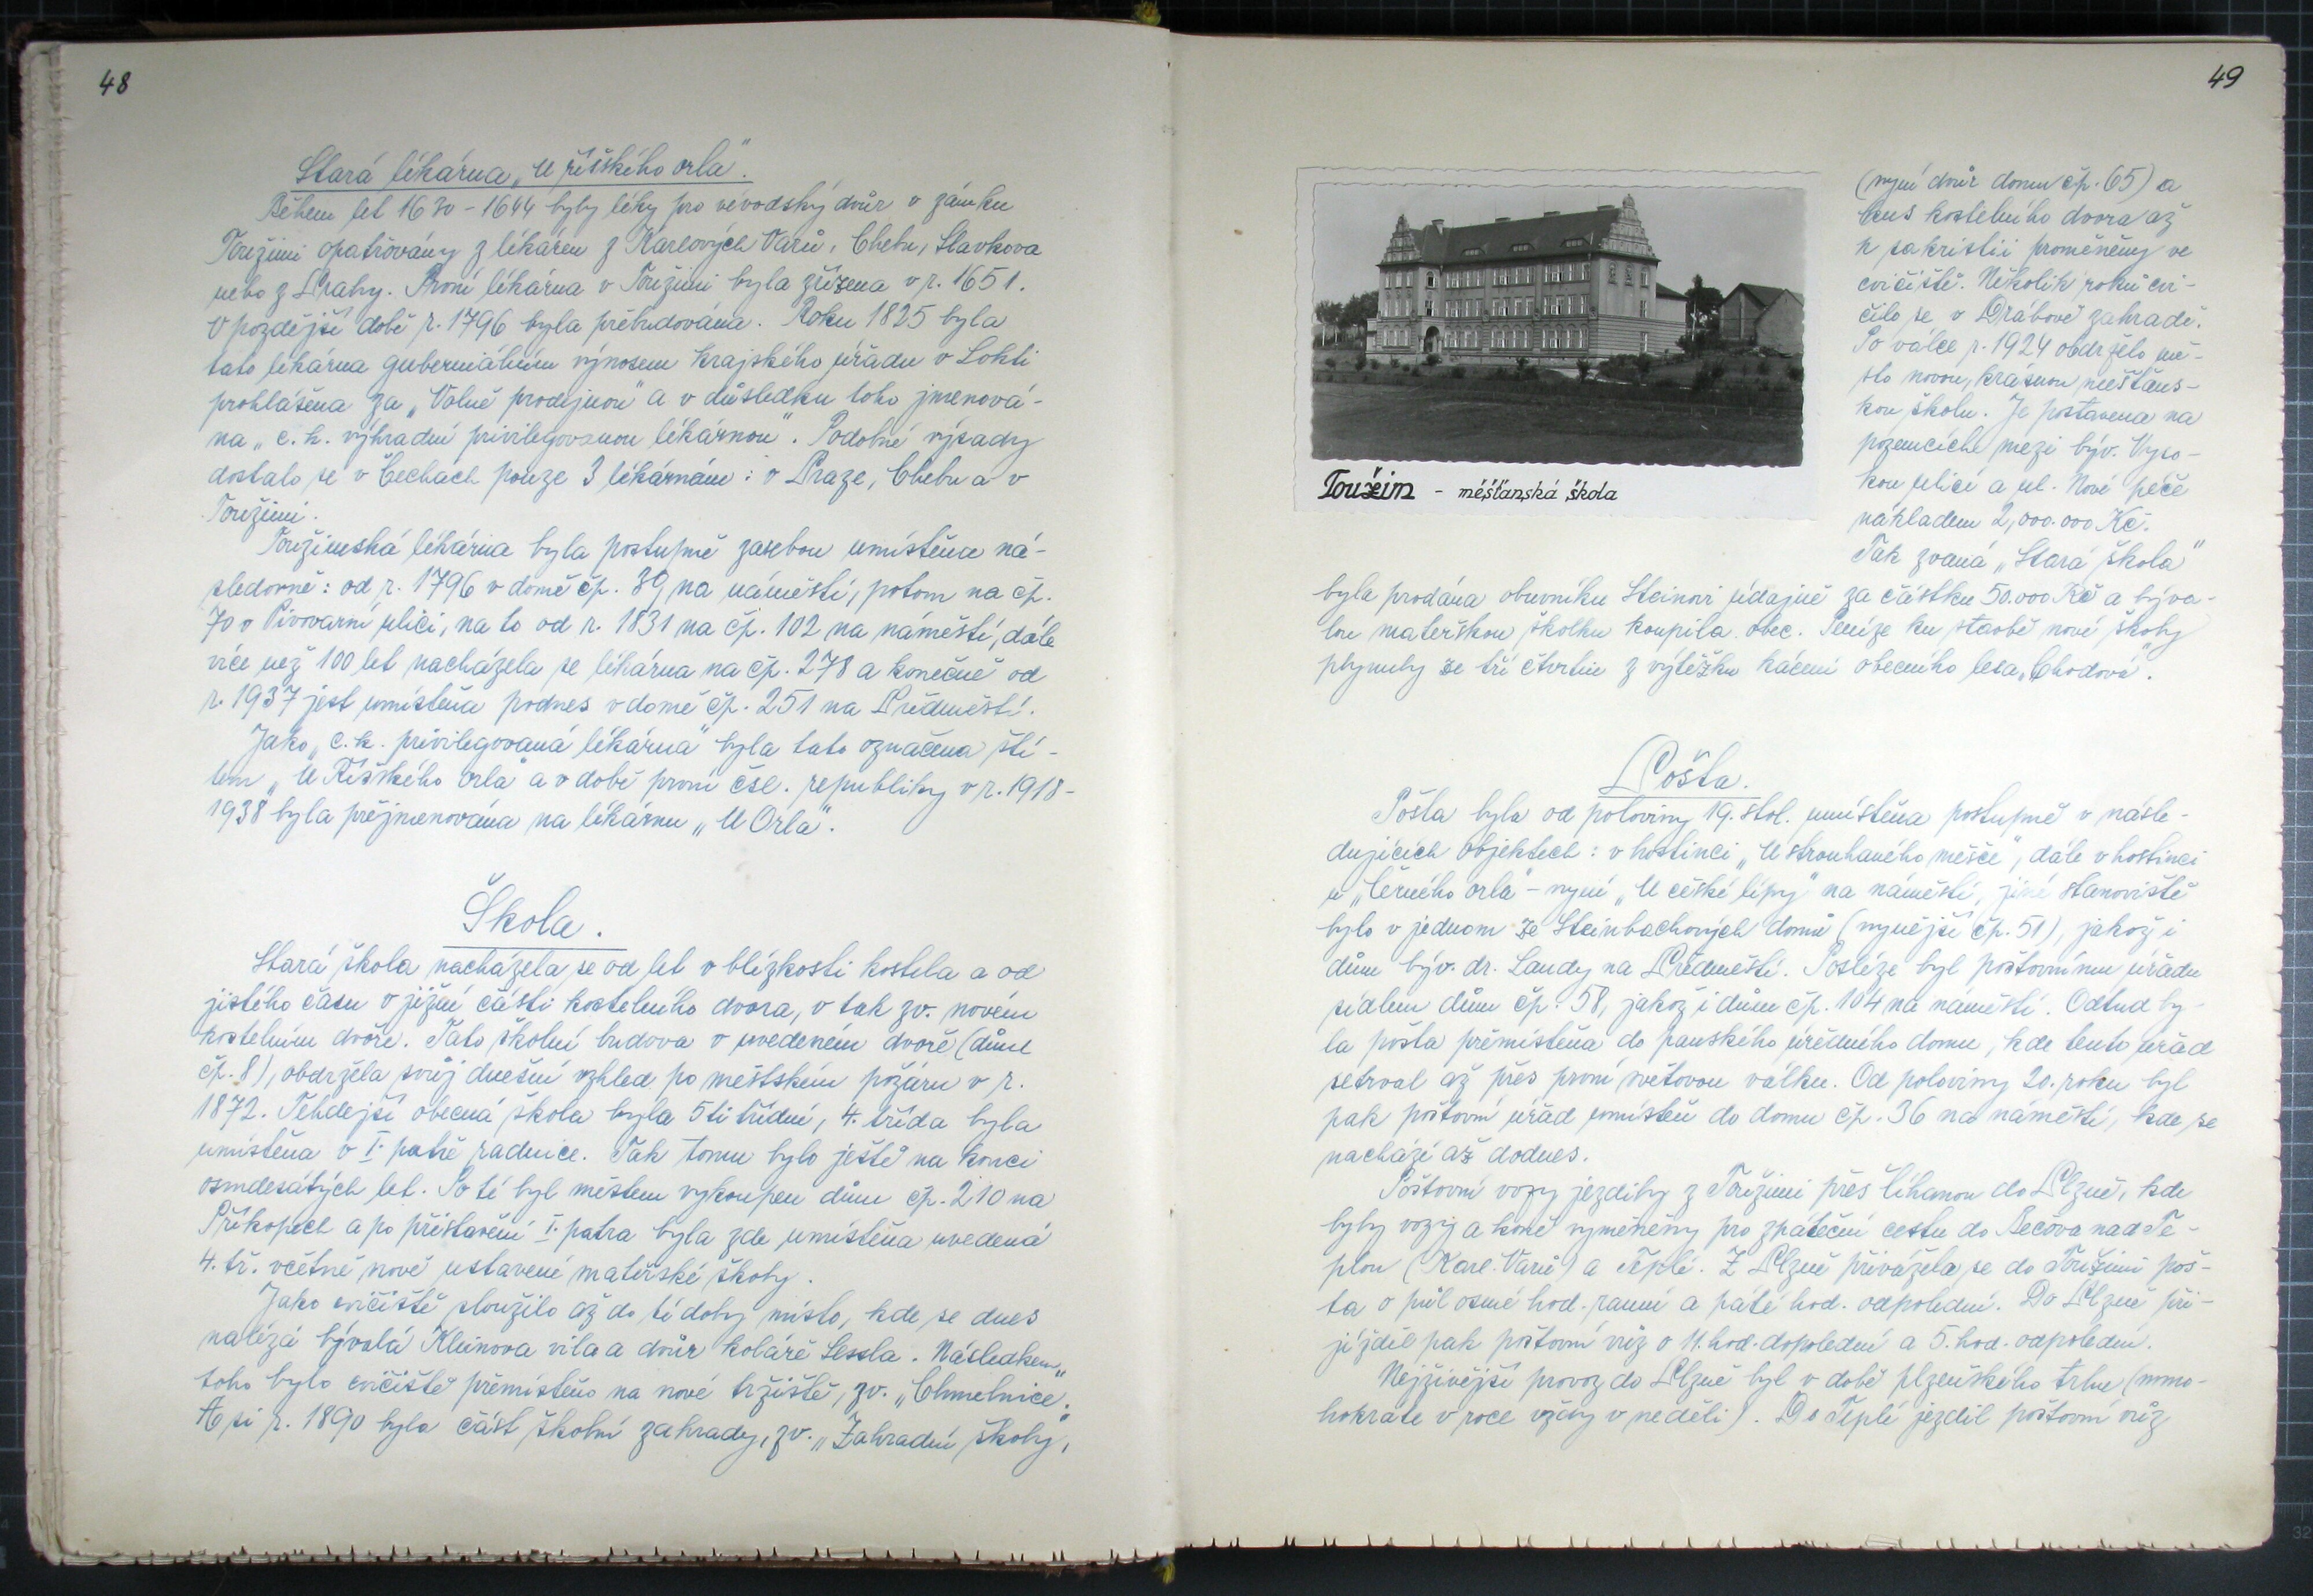 48
Stará lékárna „U říšského orla".
Během let 1630 - 1644 byly léky pro vévodský dvůr v zámku
Toužimi opatřovány z lékáren z Karlových Varů, Chebu, Slavkova
nebo z Prahy. První lékárna v Toužimi byla zřízena v r. 1651.
V pozdější době r. 1796 byla přebudována. Roku 1825 byla
tato lékárna guberniálním výnosem krajského úřadu v Lokti
prohlášena za „Volně prodejnou" a v důsledku toho jmenová-
na „c. k. výhradní privilegovanou lékárnou". Podobné výsady
dostalo se v Čechách pouze 3 lékárnám: v Praze, Chebu a v
Toužimi.
Toužimská lékárna byla postupně zasebou umístěna ná-
sledovně: od r. 1796 v domě čp. 39 na náměstí, potom na čp.
70 v Pivovarní ulici, na to od r. 1831 na čp. 102 na náměstí, dále
více než 100 let nacházela se lékárna na čp. 278 a konečně od
r. 1937 jest umístěna podnes v domě čp. 251 na Předměstí.
Jako „c. k. privilegovaná lékárna" byla tato označena ští-
tem „U Říšského orla" a v době první čsl. republiky v r. 1918-
1938 byla přejmenována na lékárnu „U Orla".
Škola.
Stará škola nacházela se od let v blízkosti kostela a od
jistého času v jižní části kostelního dvora, v tak zv. novém
kostelním dvoře. Tato školní budova v uvedeném dvoře (dům
čp. 8), obdržela svůj dnešní vzhled po městském požáru v r.
1872. Tehdejší obecná škola byla 5ti třídní, 4. třída byla
umístěna v I. patře radnice. Tak tomu bylo ještě na konci
osmdesátých let. Po té byl městem vykoupen dům čp. 210 na
Příkopech a po přistavění I. patra byla zde umístěna uvedená
4. tř. včetně nově ustavené mateřské školy.
Jako cvičiště sloužilo až do té doby místo, kde se dnes
nalézá bývalá Kleinova vila a dvůr koláře Lessla. Následkem
toho bylo cvičiště přemístěno na nové tržiště, zv. „Chmelnice".
Asi r. 1890 byla část školní zahrady, zv. „Zahradní školy",
49
Toužim - měšťanská škola
(nyní dvůr domu čp. 65) a
kus kostelního dvora až
k sakristii proměněny ve
cvičiště. Několik roků cvi-
čilo se v Drábově zahradě.
Po válce r. 1924 obdrželo mě-
sto novou, krásnou měšťans-
kou školu. Je postavena na
pozemcích mezi býv. Vyso-
kou ulicí a ul. Nové péče
nákladem 2,000.000 Kč.
Tak zvaná „Stará škola"
byla prodána obuvníku Steinovi údajně za částku 50.000 Kč a býva-
lou mateřskou školku koupila obec. Peníze ku stavbě nové školy
plynuly ze tří čtvrtin z výtěžku kácení obecního lesa „Chodová".
Pošta.
Pošta byla od poloviny 19. stol. umístěna postupně v násle-
dujících objektech: v hostinci „U strouhaného měsče", dále v hostinci
u „Černého orla" - nyní „U české lípy" na náměstí, jiné stanoviště
bylo v jednom ze Steinbachových domů (nynější čp. 51), jakož i
dům býv. dr. Laudy na Předměstí. Posléze byl poštovnímu úřadu
sídlem dům čp. 58, jakož i dům čp. 104 na náměstí. Odtud by-
la pošta přemístěna do panského úředního domu, kde tento úřad
setrval až přes první světovou válku. Od poloviny 20. roků byl
pak poštovní úřad umístěn do domu čp. 36 na náměstí, kde se
nachází až dodnes.
Poštovní vozy jezdily z Toužimi přes Číhanou do Plzně, kde
byly vozy a koně vyměněny pro zpáteční cestu do Bečova nad Te-
plou (Karl. Varů) a Teplé. Z Plzně přivážela se do Toužimi poš-
ta o půl osmé hod. ranní a páté hod. odpolední. Do Plzně při-
jížděl pak poštovní vůz o 11. hod. dopolední a 5. hod. odpolední.
Nejživější provoz do Plzně byl v době plzeňského trhu (mno-
hokráte v roce vždy v neděli). Do Teplé jezdil poštovní vůz